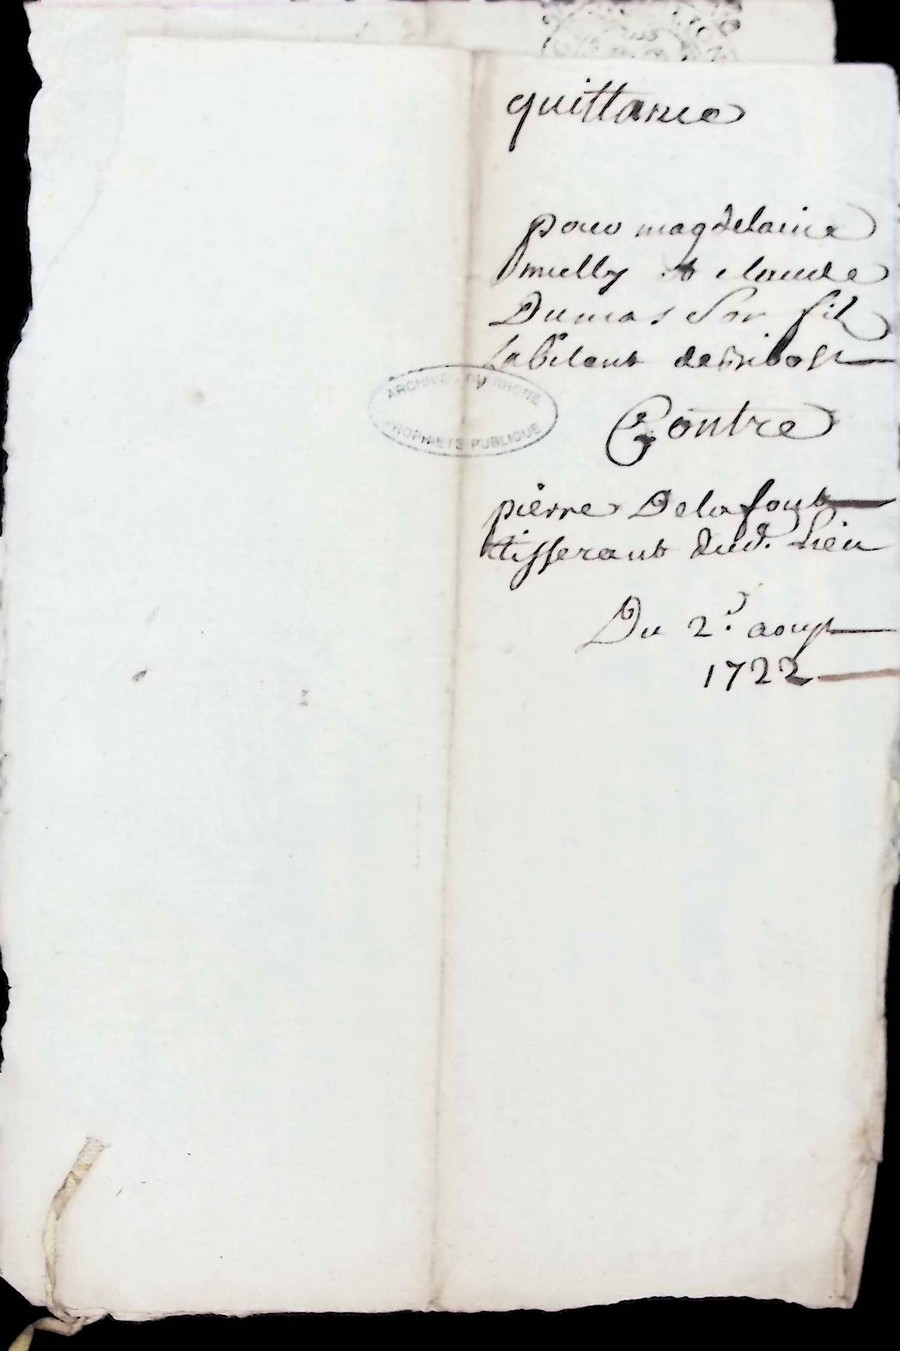 quittance
pour magdelaine
mully et claude
Dumas son fils
habitant de Ribost
Contre
pierre Delafont
tisserant dud. lieu
Du 2e aoust
1722
ARCHIVES DU RHONE
PROPRIETE PUBLIQUE